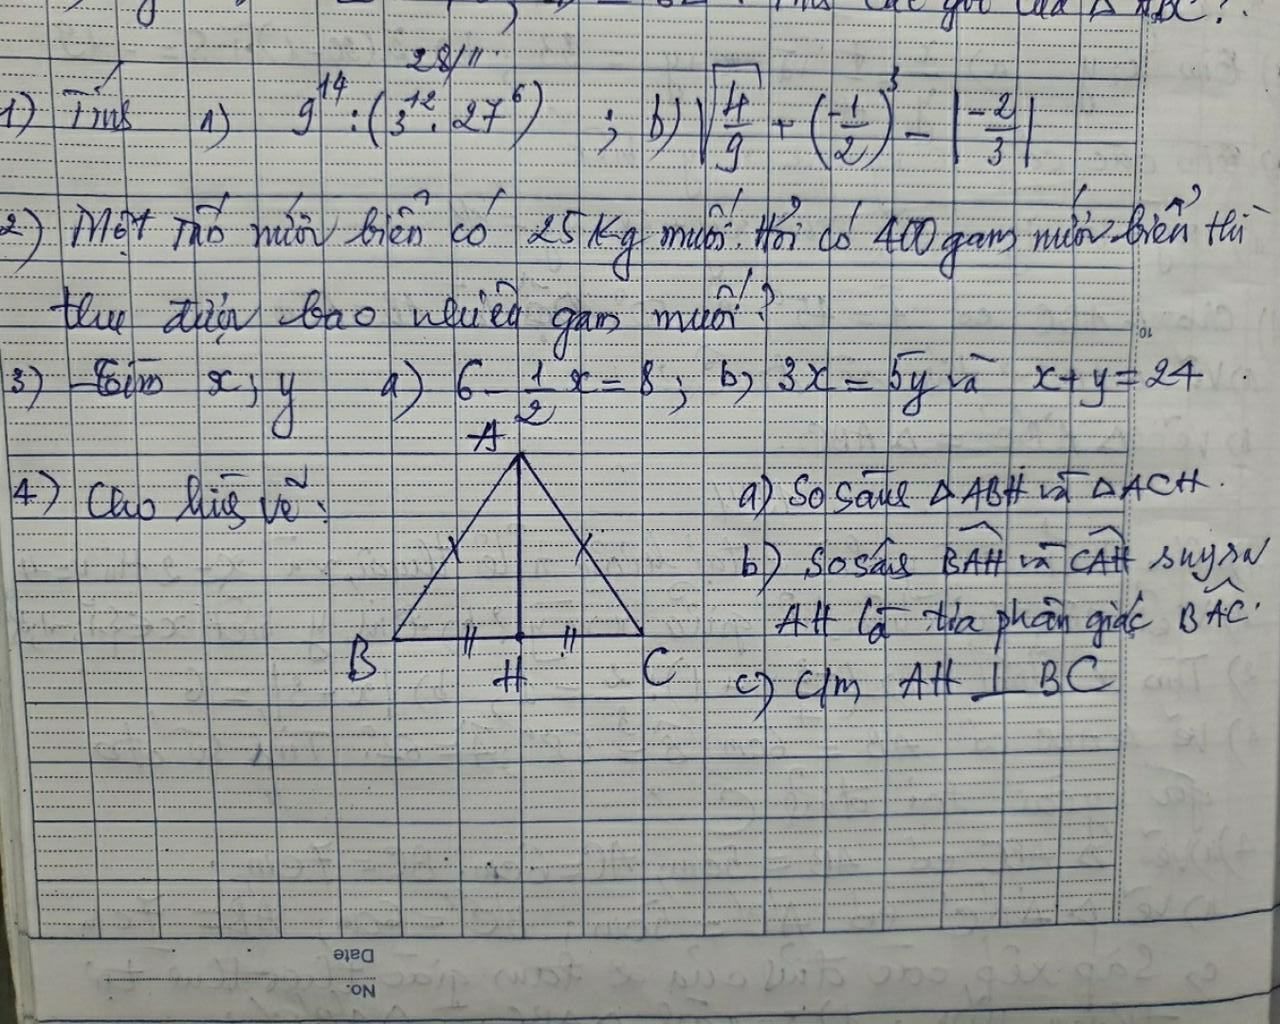 các góc của △ABC?
28/11
1) Tính a) 9^14 : (3^12 . 27^6) ; b) √(4/9) + (-1/2)^3 - |-2/3|
2) Một tấn nước biển có 25 Kg muối. Hỏi có 400 gam nước biển thì
thu được bao nhiêu gam muối?
3) Tìm x; y a) 6 - 1/2 x = 8; b, 3x = 5y và x+y = 24
A
4) Cho hình vẽ: a) So sánh △ABH và △ACH.
b) So sánh \widehat{BAH} và \widehat{CAH} suy ra
AH là tia phân giác \widehat{BAC}.
B H C c) C/m AH ⊥ BC
Date
No.